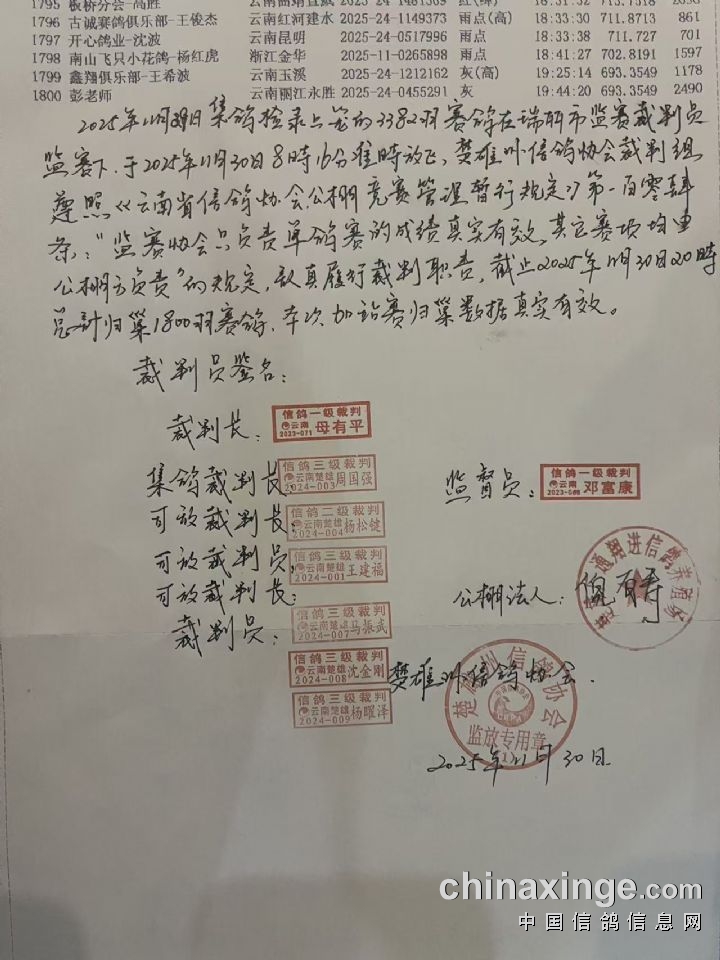 1795 板桥分会-高胜 2025-24-1481369 18:31:32 713.7318 2058
1796 古诚赛鸽俱乐部-王俊杰 云南红河建水 2025-24-1149373 雨点(高) 18:33:30 711.8713 861
1797 开心鸽业-沈波 云南昆明 2025-24-0517996 雨点 18:33:38 711.727 701
1798 南山飞只小花鸽-杨红虎 浙江金华 2025-11-0265898 雨点 18:41:27 702.8191 1597
1799 鑫翔俱乐部-王希波 云南玉溪 2025-24-1212162 灰(高) 19:25:14 693.3549 1178
1800 彭老师 云南丽江永胜 2025-24-0455291 灰 19:44:20 693.3549 2490
2025年11月29日集鸽检录上笼的3382羽赛鸽在瑞丽市监赛裁判员
监赛下.于2025年11月30日8時16分准時放飞,楚雄州信鸽协会裁判组
遵照《云南省信鸽协会公棚竞赛管理暂行规定》第一百零肆
条:"监赛协会只负责单鸽赛的成绩真实有效,其它赛项均由
公棚方负责"的规定,认真履行裁判职责,截止2025年11月30日20時
总计归巢1800羽赛鸽.本次加站赛归巢数据真实有效。
裁判员签名:
裁判长:
信鸽一级裁判
云南
2023-071 母有平
集鸽裁判长
信鸽三级裁判
云南楚雄
2024-003 周国强
监督员:
信鸽一级裁判
云南
邓富康
司放裁判长:
信鸽二级裁判
云南楚雄
2024-004 杨松键
司放裁判员,
信鸽三级裁判
云南楚雄
2024-001 王建福
司放裁判长:
公棚法人:倪有寿
通翔进信鸽养殖场
裁判员:
信鸽三级裁判
云南楚雄
2024-007 马振武
信鸽三级裁判
云南楚雄
2024-008 沈金刚
楚雄州信鸽协会.
楚雄州信鸽协会
监放专用章
(1)
信鸽三级裁判
云南楚雄
2024-009 杨曜泽
2025年11月30日
chinaxinge.com
中国信鸽信息网